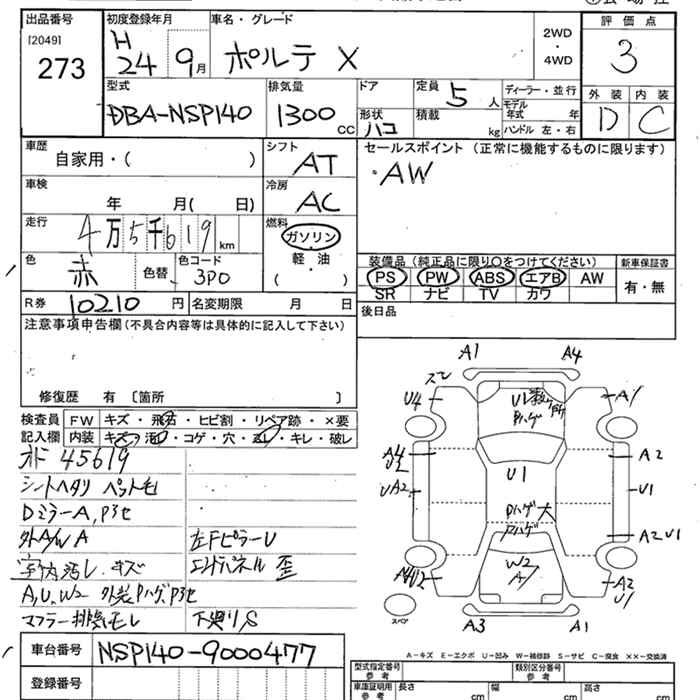 出品番号 初度登録年月 車名・グレード 2WD・4WD 評価点
[2049]
273 H24 9月 ポルテ X 3
型式 排気量 ドア 定員 5人 ディーラー・並行 外装 内装
DBA-NSP140 1300cc 形状 ハコ 積載 kg モデル年式 年 D C
ハンドル 左・右
車歴 自家用・( ) シフト AT セールスポイント (正常に機能するものに限ります)
車検 年 月( 日) 冷房 AC ・AW
走行 4万5千619km 燃料 ガソリン
色 赤 色替 色コード 3P0 軽・油 ( )
装備品 (純正品に限り○をつけてください) 新車保証書
PS PW ABS エアB AW 有・無
SR ナビ TV カワ
R券 10210円 名変期限 月 日 後日品
注意事項申告欄 (不具合内容等は具体的に記入して下さい)
修復歴 有 〔箇所 〕
検査員記入欄 FW キズ・飛石・ヒビ割・リペア跡・×要
内装 キズ・汚・コゲ・穴・ ・キレ・破レ
オド 45619
シートヘタリ ペット毛
Dミラー A,Pヨセ
外A/W A 左Fピラー U
室内汚レ、キズ エンドパネル 歪
A,U,W2 外装Pハゲ,Pヨセ
マフラー排気モレ 下廻りS
A1 A4
スレ
U4 U1 Pハゲ A1
A4 U1 A2
UA2 U1 U1
Pハゲ 大
Pハゲ A2 U1
W2 A1
A2 U1
スペア A3 A1
A-キズ E-エクボ U-凹み W-補修跡 S-サビ C-腐食 XX-交換済
車台番号 NSP140-9000477
登録番号
型式指定番号 参考 類別区分番号 参考
車庫証明用 参考 長さ cm 幅 cm 高さ cm